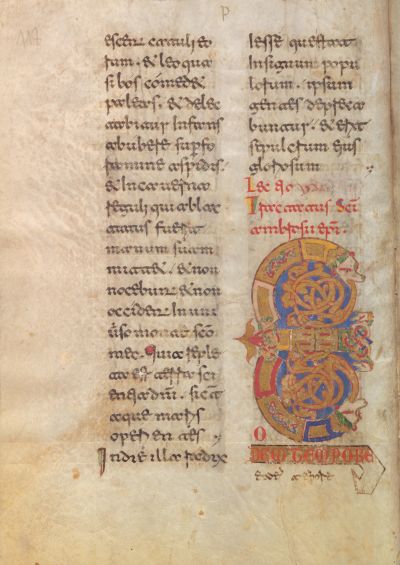 escent catuli eo
rum. & leo qua
si bos cómed&
paleas. & dele
ctabitur infans
ab ubere sup fo
ramine aspidis.
& in cauerna
reguli qui ablac
tatus fuerit
manum suam
mitt&. & non
nocebunt & non
occident in uni
uso monte sco
meo. Quia reple
ta est terra sci
entia dni. sicut
aque maris
operientes
In die illa radix
Iesse qui stat
in signum popu
lorum. ipsum
gentes depreca
buntur. & erit
sepulcrum eius
gloriosum
Tractatus Sci
ambrosii epi.
E
O
DEM TEMPORE